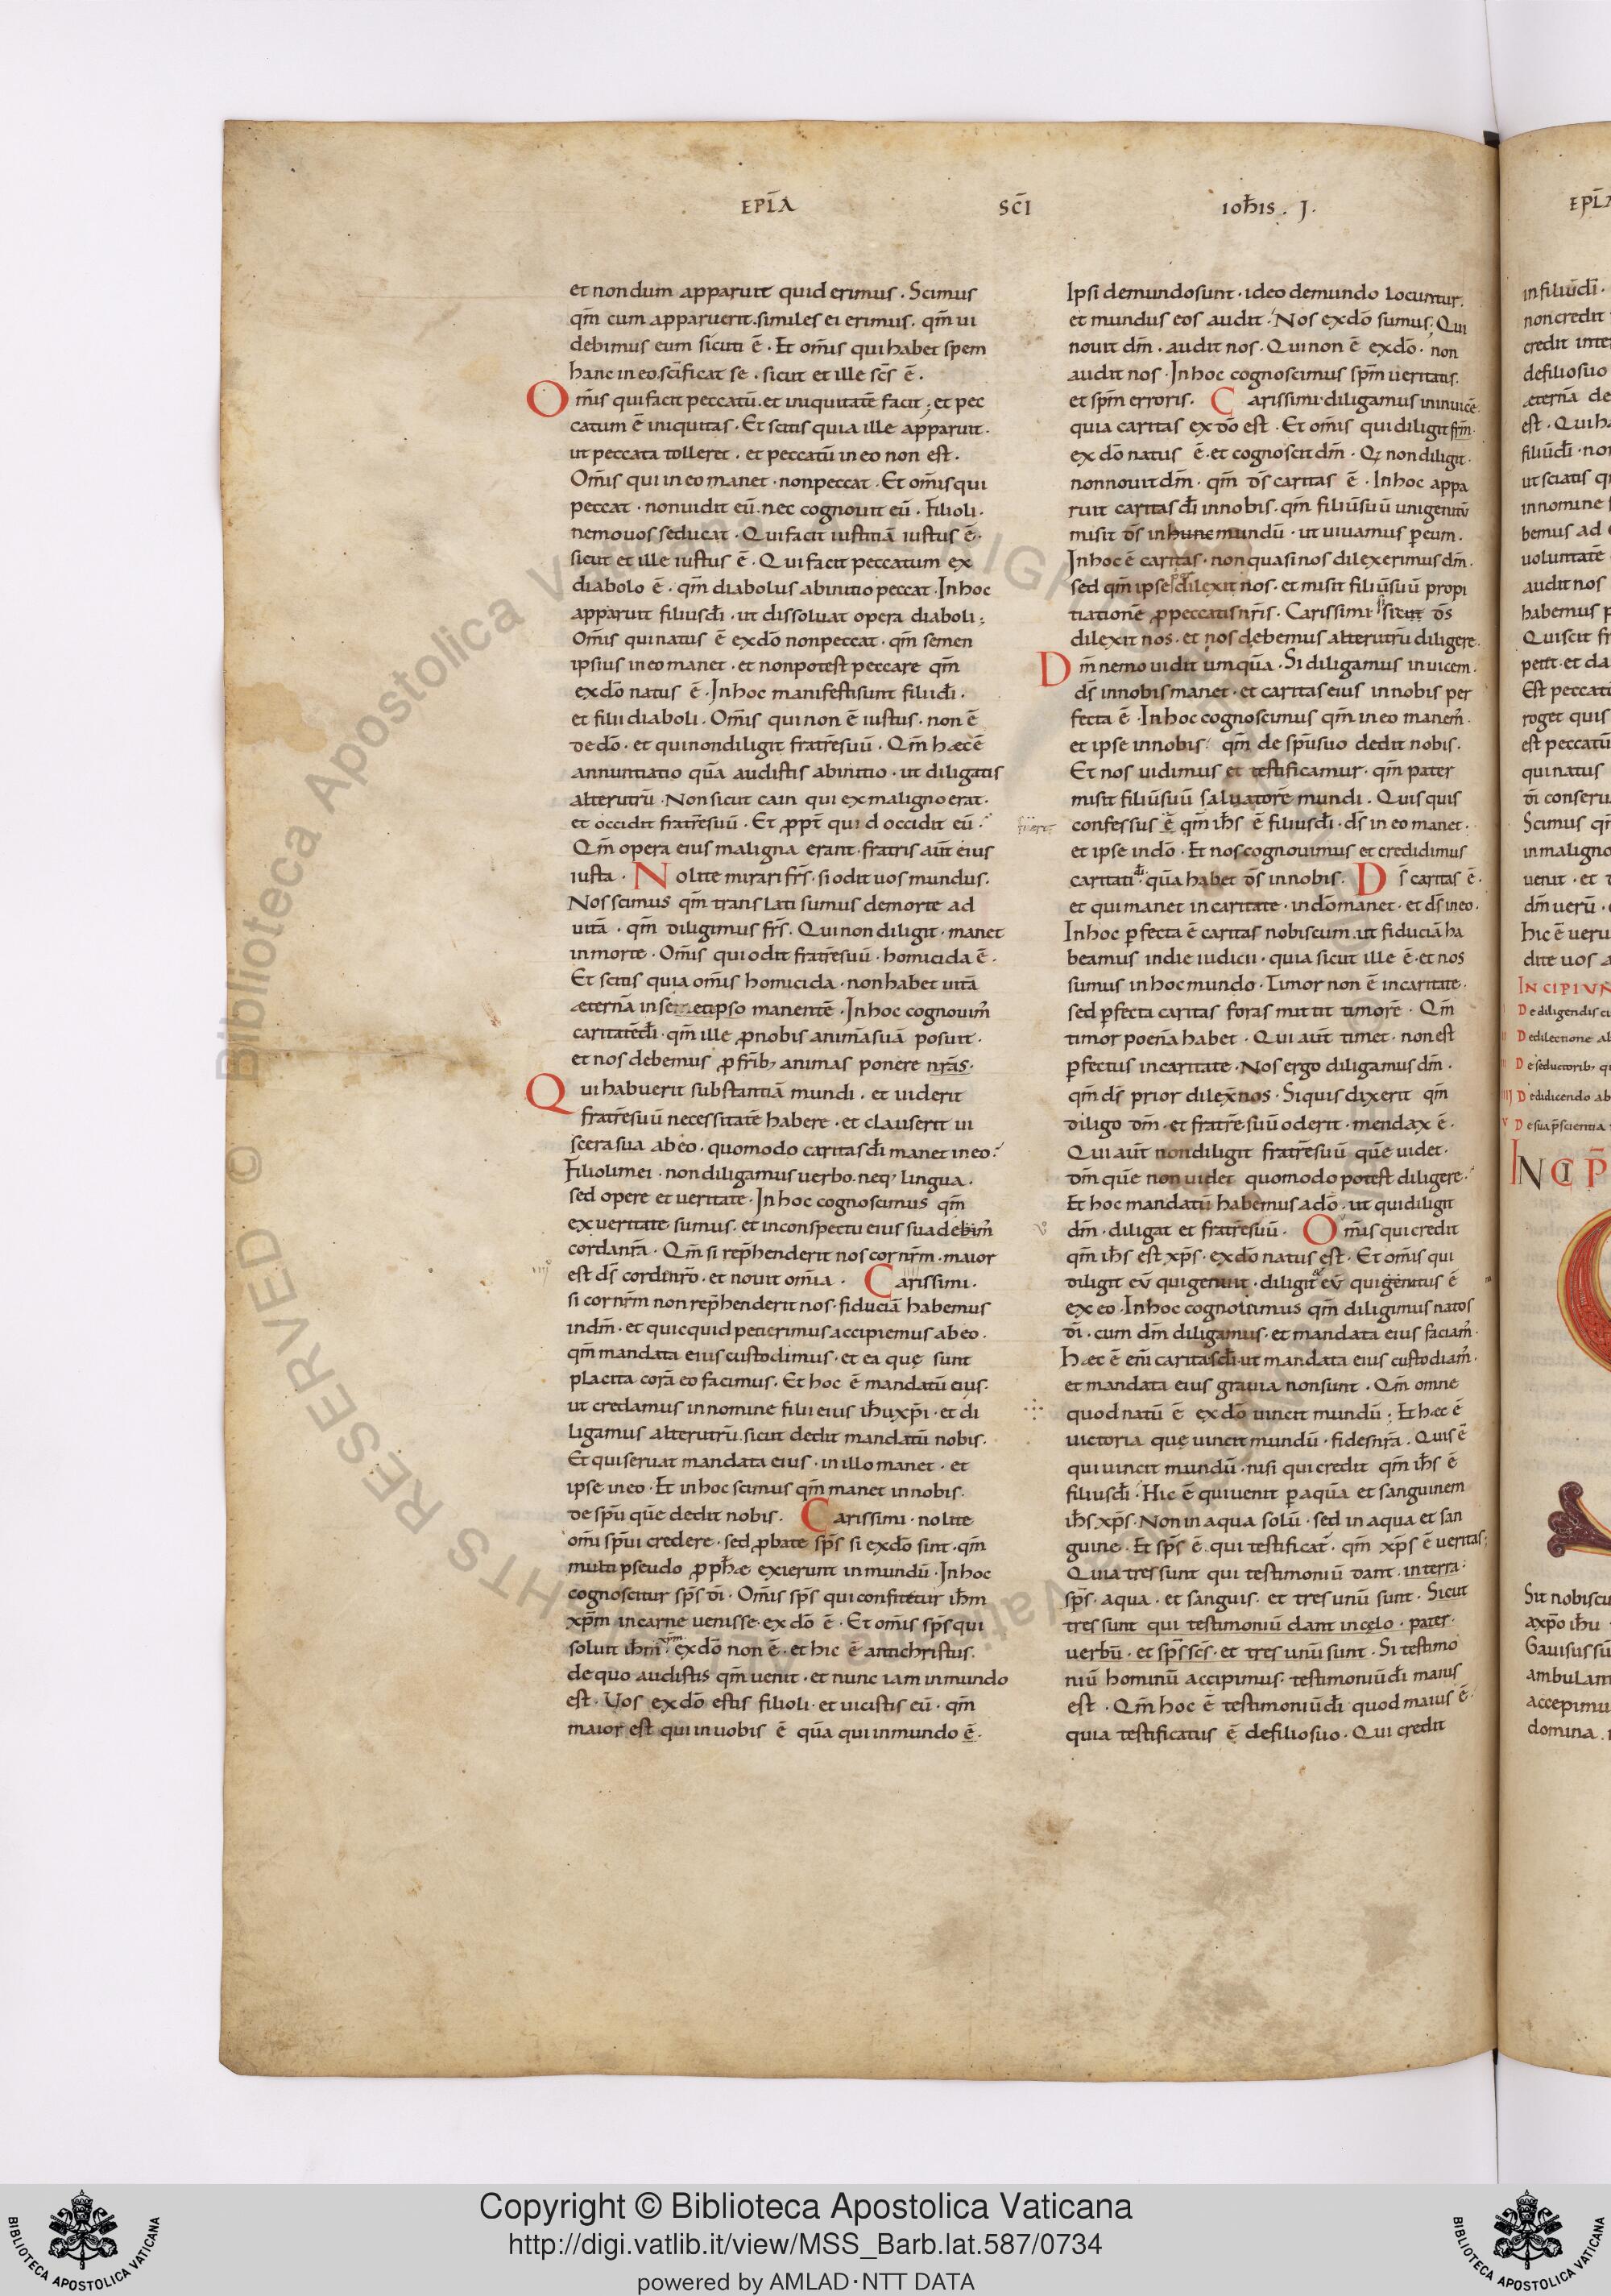 EPL̅A SC̅I IOH̅IS. J.
et nondum apparuit quid erimus. Scimus
qm̅ cum apparuerit. similes ei erimus. qm̅ ui
debimus eum sicuti ē. Et om̅is qui habet spem
hanc in eo. sc̅ificat se. sicut et ille sc̅s ē.
Om̅is qui facit peccatū. et iniquitatē facit; et pec
catum ē iniquitas. Et scitis quia ille apparuit.
ut peccata tolleret. et peccatū in eo non est.
Om̅is qui in eo manet. non peccat. Et om̅is qui
peccat. non uidit eū. nec cognouit eū. Filioli.
nemo uos seducat. Qui facit iustitiā iustus ē.
sicut et ille iustus ē. Qui facit peccatum ex
diabolo ē. qm̅ diabolus ab initio peccat. In hoc
apparuit filius di̅. ut dissoluat opera diaboli;
Om̅is qui natus ē ex do̅ non peccat. qm̅ semen
ipsius in eo manet. et non potest peccare qm̅
ex do̅ natus ē. In hoc manifesti sunt filii di̅.
et filii diaboli. Om̅is qui non ē iustus. non ē
de do̅. et qui non diligit fratrē suū. Qm̅ hæc ē
annuntiatio quā audistis ab initio. ut diligatis
alterutrū. Non sicut cain qui ex maligno erat.
et occidit fratrē suū. Et ꝓpt̅ quid occidit eū?
Qm̅ opera eius maligna erant. fratris aut̅ eius
iusta. Nolite mirari fr̅s. si odit uos mundus.
Nos scimus qm̅ translati sumus de morte ad
uitā. qm̅ diligimus fr̅s. Qui non diligit. manet
in morte. Om̅is qui odit fratrē suū. homicida ē.
Et scitis quia om̅is homicida. non habet uitā
æternā in semetipso manentē. In hoc cognouim᷒
caritatē di̅. qm̅ ille ꝓ nobis animā suā posuit.
et nos debemus ꝓ fr̅ib; animas ponere nr̅as.
Qui habuerit substantiā mundi. et uiderit
fratrē suū necessitatē habere. et clauserit ui
scera sua ab eo. quomodo caritas di̅ manet in eo?
Filioli mei. non diligamus uerbo. neq; lingua.
sed opere et ueritate. In hoc cognoscimus qm̅
ex ueritate sumus. et in conspectu eius suadebim᷒
corda nr̅a. Qm̅ si rep̅henderit nos cor nr̅m. maior
est ds̅ corde nr̅o. et nouit om̅ia. Carissimi.
si cor nr̅m non rep̅henderit nos. fiduciā habemus
in dm̅. et quicquid petierimus accipiemus ab eo.
qm̅ mandata eius custodimus. et ea quę sunt
placita corā eo facimus. Et hoc ē mandatū eius.
ut credamus in nomine filii eius ih̅u xp̅i. et di
ligamus alterutrū. sicut dedit mandatū nobis.
Et qui seruat mandata eius. in illo manet. et
ipse in eo. Et in hoc scimus qm̅ manet in nobis.
de sp̅u quē dedit nobis. Carissimi. nolite
om̅i sp̅ui credere. sed ꝓbate sp̅s si ex do̅ sint. qm̅
multi pseudo ꝓph̅æ exierunt in mundū. In hoc
cognoscitur sp̅s di̅. Om̅is sp̅s qui confitetur ih̅m
xp̅m in carne uenisse. ex do̅ ē. Et om̅is sp̅s qui
soluit ih̅m xp̅m. ex do̅ non ē. et hic ē antichristus.
de quo audistis qm̅ uenit. et nunc iam in mundo
est. Vos ex do̅ estis filioli. et uicistis eū. qm̅
maior est qui in uobis ē quā qui in mundo ē.
Ipsi de mundo sunt. ideo de mundo locuntur.
et mundus eos audit. Nos ex do̅ sumus. Qui
nouit dm̅. audit nos. Qui non ē ex do̅. non
audit nos. In hoc cognoscimus sp̅m ueritatis.
et sp̅m erroris. Carissimi. diligamus in inuicē.
quia caritas ex do̅ est. Et om̅is qui diligit fr̅m.
ex do̅ natus ē. et cognoscit dm̅. Q; non diligit.
non nouit dm̅. qm̅ ds̅ caritas ē. In hoc appa
ruit caritas di̅ in nobis. qm̅ filiū suū unigenitū
misit ds̅ in hunc mundū. ut uiuamus per eum.
In hoc ē caritas. non quasi nos dilexerimus dm̅.
sed qm̅ ipse dilexit nos. et misit filiū suū propi
tiationē ꝓ peccatis nr̅is. Carissimi si sicut ds̅
dilexit nos. et nos debemus alterutrū diligere.
Dm̅ nemo uidit umquā. Si diligamus inuicem.
ds̅ in nobis manet. et caritas eius in nobis per
fecta ē. In hoc cognoscimus qm̅ in eo manem᷒.
et ipse in nobis. qm̅ de sp̅u suo dedit nobis.
Et nos uidimus et testificamur. qm̅ pater
misit filiū suū saluatorē mundi. Quisquis
confessus ē qm̅ ih̅s ē filius di̅. ds̅ in eo manet.
et ipse in do̅. Et nos cognouimus et credidimus
caritati di̅. quā habet ds̅ in nobis. Ds̅ caritas ē.
et qui manet in caritate. in do̅ manet. et ds̅ in eo.
In hoc ꝑfecta ē caritas nobiscum. ut fiduciā ha
beamus in die iudicii. quia sicut ille ē. et nos
sumus in hoc mundo. Timor non ē in caritate.
sed ꝑfecta caritas foras mittit timorē. Qm̅
timor poenā habet. Qui aut̅ timet. non est
ꝑfectus in caritate. Nos ergo diligamus dm̅.
qm̅ ds̅ prior dilex̅ nos. Siquis dixerit qm̅
diligo dm̅. et fratrē suū oderit. mendax ē.
Qui aut̅ non diligit fratrē suū quē uidet.
dm̅ quē non uidet quomodo potest diligere?
Et hoc mandatū habemus a do̅. ut qui diligit
dm̅. diligat et fratrē suū. Om̅is qui credit
qm̅ ih̅s est xp̅s. ex do̅ natus est. Et om̅is qui
diligit eū qui genuit. diligit et eū qui genitus ē
ex eo. In hoc cognoscimus qm̅ diligimus natos
di̅. cum dm̅ diligamus. et mandata eius faciam᷒.
Hæc ē eni̅ caritas di̅. ut mandata eius custodiam᷒.
et mandata eius grauia non sunt. Qm̅ omne
quod natū ē ex do̅ uincit mundū. Et hæc ē
uictoria quę uincit mundū. fides nr̅a. Quis ē
qui uincit mundū. nisi qui credit qm̅ ih̅s ē
filius di̅. Hic ē qui uenit ꝑ aquā et sanguinem
ih̅s xp̅s. Non in aqua solū. sed in aqua et san
guine. Et sp̅s ē. qui testificat̅. qm̅ xp̅s ē ueritas;
Quia tres sunt qui testimoniū dant. in terra.
sp̅s. aqua. et sanguis. et tres unū sunt. Sicut
tres sunt qui testimoniū dant in cęlo. pater.
uerbū. et sp̅s sc̅s. et tres unū sunt. Si testimo
niū hominū accipimus. testimoniū di̅ maius
est. Qm̅ hoc ē testimoniū di̅ quod maius ē.
quia testificatus ē de filio suo. Qui credit
EPL̅A
in filiū di̅.
non credit
credit
de filio suo
æternā
est. Qui
filiū di̅.
ut sciatis
in nomine
bemus ad
uoluntatē
audit nos
habemus
Quiscit
petit. et
Est peccatū
roget quis
est peccatū
qui natus
di̅
Scimus
in maligno
uenit. et
dm̅ uerū.
hic ē
dite uos
INCIPIUN
De diligendis
De dilectione
De seductorib;
De didicendo
De sua p̅scientia
INCIP̅
Sit nobiscu
a xp̅o ih̅u
Gauisus sū
ambulan
accepimu
domina.
Biblioteca Apostolica Vaticana
ALL RIGHTS RESERVED ©
Copyright © Biblioteca Apostolica Vaticana
http://digi.vatlib.it/view/MSS_Barb.lat.587/0734
powered by AMLAD·NTT DATA
BIBLIOTECA APOSTOLICA VATICANA
BIBLIOTECA APOSTOLICA VATICANA